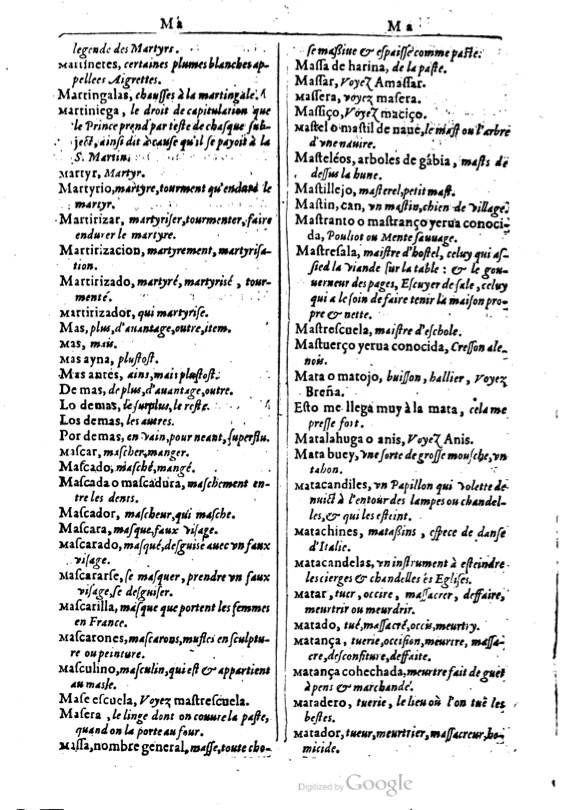 Ma
legende des Martyrs.
Martinetes, certaines plumes blanches ap-
pellees Aigrettes.
Martingalas, chausses à la martingale.
Martiniega, le droit de capitulation que
le Prince prend par teste de chasque sub-
ject, ainsi dit à cause qu'il se payoit à la
S. Martin.
Martyr, Martyr.
Martyrio, martyre, tourment qu'enduré le
martyr.
Martirizar, martyriser, tourmenter, faire
endurer le martyre.
Martirizacion, martyrement, martyrisa-
tion.
Martirizado, martyré, martyrisé, tour-
menté.
Martirizador, qui martyrise.
Mas, plus, d'auantage, outre, item.
Mas, mais.
Mas ayna, plustost.
Mas antes, ains, mais plustost.
De mas, de plus, d'auantage, outre.
Lo demas, le surplus, le reste.
Los demas, les autres.
Por demas, en vain, pour neant, superflu.
Mascar, mascher, manger.
Mascado, masché, mangé.
Mascada o mascadura, maschement en-
tre les dents.
Mascador, mascheur, qui masche.
Mascara, masque, faux visage.
Mascarado, masqué, desguisé auec vn faux
visage.
Mascararse, se masquer, prendre vn faux
visage, se desguiser.
Mascarilla, masque que portent les femmes
en France.
Mascarones, mascarons, mufles en sculptu-
re ou peinture.
Masculino, masculin, qui est & appartient
au masle.
Mase escuela, Voyez mastrescuela.
Masera, le linge dont on couure la paste,
quand on la porte au four.
Massa, nombre general, masse, toute cho-
Ma
se massiue & espaisse comme paste.
Massa de harina, de la paste.
Massar, Voyez Amassar.
Massera, voyez masera.
Massiço, Voyez maciço.
Mastel o mastil de naue, le mast ou l'arbre
d'vne nauire.
Masteléos, arboles de gábia, masts de
dessus la hune.
Mastillejo, masterel, petit mast.
Mastin, can, vn mastin, chien de village.
Mastranto o mastranço yerua conoci-
da, Pouliot ou Mente sauuage.
Mastresala, maistre d'hostel, celuy qui as-
sied la viande sur la table: & le gou-
uerneur des pages, Escuyer de sale, celuy
qui a le soin de faire tenir la maison pro-
pre & nette.
Mastrescuela, maistre d'eschole.
Mastuerço yerua conocida, Cresson ale-
nois.
Mata o matojo, buisson, hallier, Voyez
Breña.
Esto me llega muy à la mata, cela me
presse fort.
Matalahuga o anis, Voyez Anis.
Mata buey, vne sorte de grosse mousche, vn
tahon.
Matacandiles, vn Papillon qui volette de
nuict à l'entour des lampes ou chandel-
les, & qui les esteint.
Matachines, matassins, espece de danse
d'Italie.
Matacandelas, vn instrument à esteindre
les cierges & chandelles és Eglises.
Matar, tuer, occire, massacrer, deffaire,
meurtrir ou meurdrir.
Matado, tué, massacré, occis, meurtry.
Matança, tuerie, occision, meurtre, massa-
cre, desconfiture, deffaite.
Matança cohechada, meurtre fait de guet
à pens & marchandé.
Matadero, tuerie, le lieu où l'on tuë les
bestes.
Matador, tueur, meurtrier, massacreur, ho-
micide.
Digitized by Google